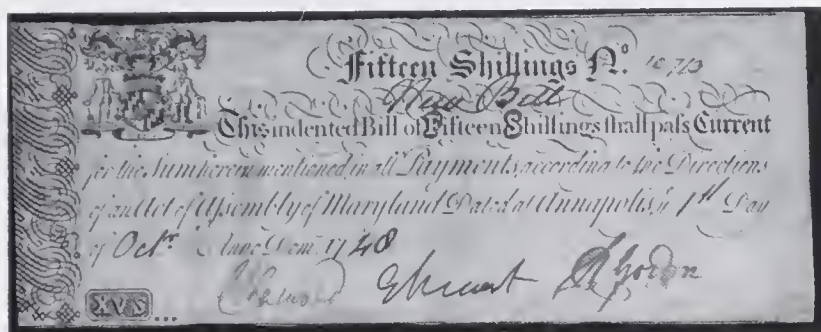 Fifteen Shillings No. 10713
New Bill
This indented Bill of Fifteen Shillings shall paſs Current
for the Sum herein mentioned in all Payments, according to the Directions
of an Act of Aſsembly of Maryland Dated at Annapolis, ye 1st Day
of Octr. Anno Dom. 1748
G Steuart R Gordon
XVS